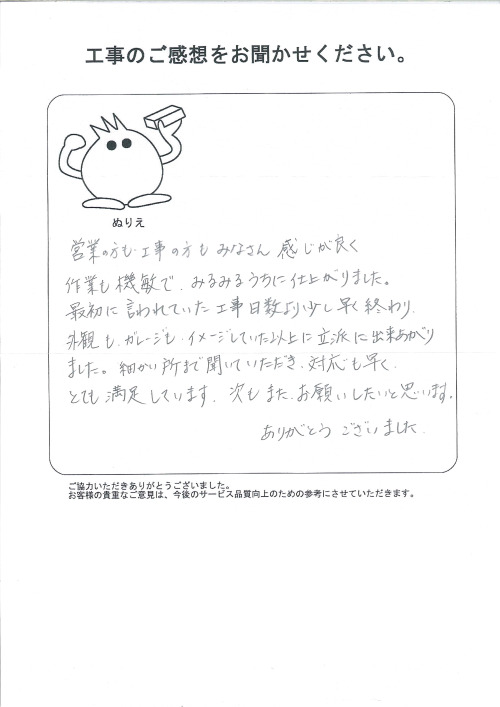 工事のご感想をお聞かせください。
ぬりえ
営業の方も、工事の方も みなさん 感じが良く
作業も機敏で、みるみるうちに仕上がりました。
最初に言われていた工事日数より少し早く終わり、
外観も、ガレージも、イメージしていた以上に立派に出来あがり
ました。細かい所まで聞いていただき、対応も早く、
とても満足しています。次もまた、お願いしたいと思います。
ありがとうございました。
ご協力いただきありがとうございました。
お客様の貴重なご意見は、今後のサービス品質向上のための参考にさせていただきます。